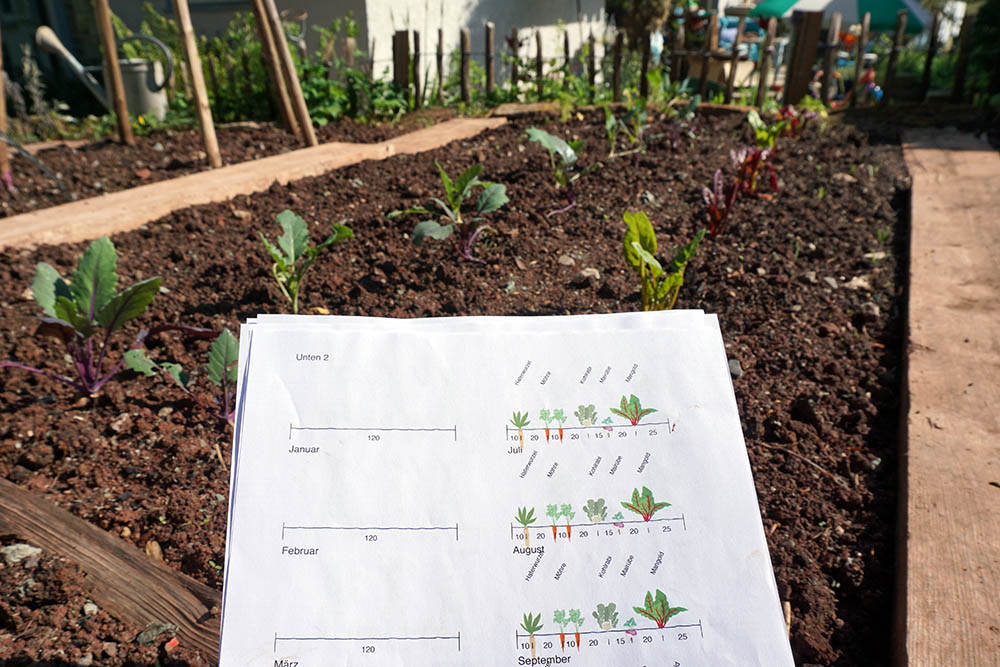 Unten 2
120
Januar
120
Februar
120
März
Haferwurzel Möhre Kohlrabi Mairübe Mangold
10 20 10 20 15 20 25
Juli
Haferwurzel Möhre Kohlrabi Mairübe Mangold
10 20 10 20 15 20 25
August
Haferwurzel Möhre Kohlrabi Mairübe Mangold
10 20 10 20 15 20 25
September